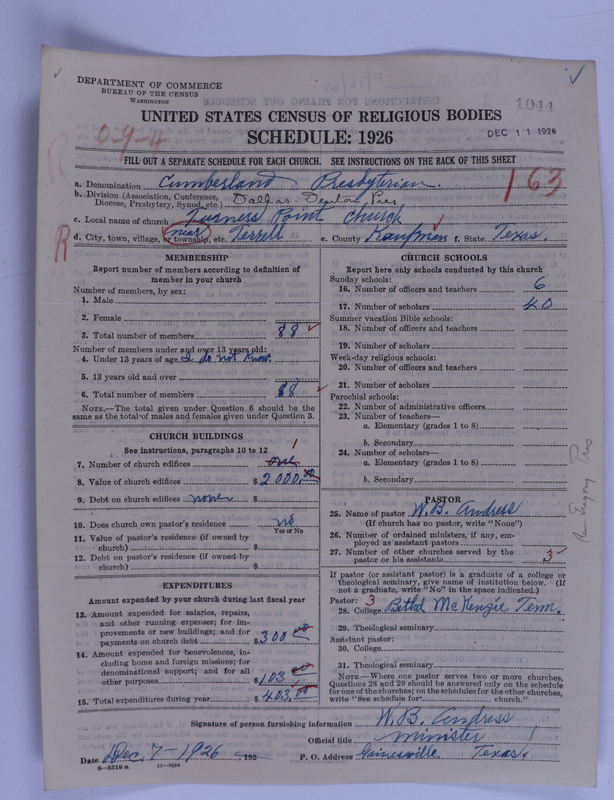 DEPARTMENT OF COMMERCE
BUREAU OF THE CENSUS
WASHINGTON
1041
UNITED STATES CENSUS OF RELIGIOUS BODIES
SCHEDULE: 1926
DEC 11 1926
0-9-4
FILL OUT A SEPARATE SCHEDULE FOR EACH CHURCH. SEE INSTRUCTIONS ON THE BACK OF THIS SHEET
163
R
R
a. Denomination Cumberland Presbyterian.
b. Division (Association, Conference, Diocese, Presbytery, Synod, etc.) Dallas-Denton Pres
c. Local name of church Turners Point Church
d. City, town, village, or township, etc. near Terrell e. County Kaufman f. State Texas.
MEMBERSHIP
Report number of members according to definition of member in your church
Number of members, by sex:
1. Male
2. Female
3. Total number of members 88
Number of members under and over 13 years old:
4. Under 13 years of age I do not know.
5. 13 years old and over
6. Total number of members 88
NOTE.—The total given under Question 6 should be the same as the total of males and females given under Question 3.
CHURCH BUILDINGS
See instructions, paragraphs 10 to 12
7. Number of church edifices one 1
8. Value of church edifices $ 2000.00
9. Debt on church edifices none $
10. Does church own pastor's residence no
Yes or No
11. Value of pastor's residence (if owned by church) $
12. Debt on pastor's residence (if owned by church) $
EXPENDITURES
Amount expended by your church during last fiscal year
13. Amount expended for salaries, repairs, and other running expenses; for improvements or new buildings; and for payments on church debt $ 300.00
14. Amount expended for benevolences, including home and foreign missions; for denominational support; and for all other purposes $ 103.00
15. Total expenditures during year $ 403.00
CHURCH SCHOOLS
Report here only schools conducted by this church
Sunday schools:
16. Number of officers and teachers 6
17. Number of scholars 40
Summer vacation Bible schools:
18. Number of officers and teachers
19. Number of scholars
Week-day religious schools:
20. Number of officers and teachers
21. Number of scholars
Parochial schools:
22. Number of administrative officers
23. Number of teachers—
a. Elementary (grades 1 to 8)
b. Secondary
24. Number of scholars—
a. Elementary (grades 1 to 8)
b. Secondary
PASTOR
25. Name of pastor W. B. Andress
(If church has no pastor, write "None")
26. Number of ordained ministers, if any, employed as assistant pastors
27. Number of other churches served by the pastor or his assistants 3
If pastor (or assistant pastor) is a graduate of a college or theological seminary, give name of institution below. (If not a graduate, write "No" in the space indicated.)
Pastor: 3
28. College Bethel McKenzie Tenn.
29. Theological seminary
Assistant pastor:
30. College
31. Theological seminary
NOTE.—Where one pastor serves two or more churches, Questions 28 and 29 should be answered only on the schedule for one of the churches; on the schedules for the other churches, write "See schedule for church."
Signature of person furnishing information W. B. Andress
Official title Minister
Date Dec. 7-1926, 192 P. O. Address Gainesville Texas.
8-5518 a 11-9084